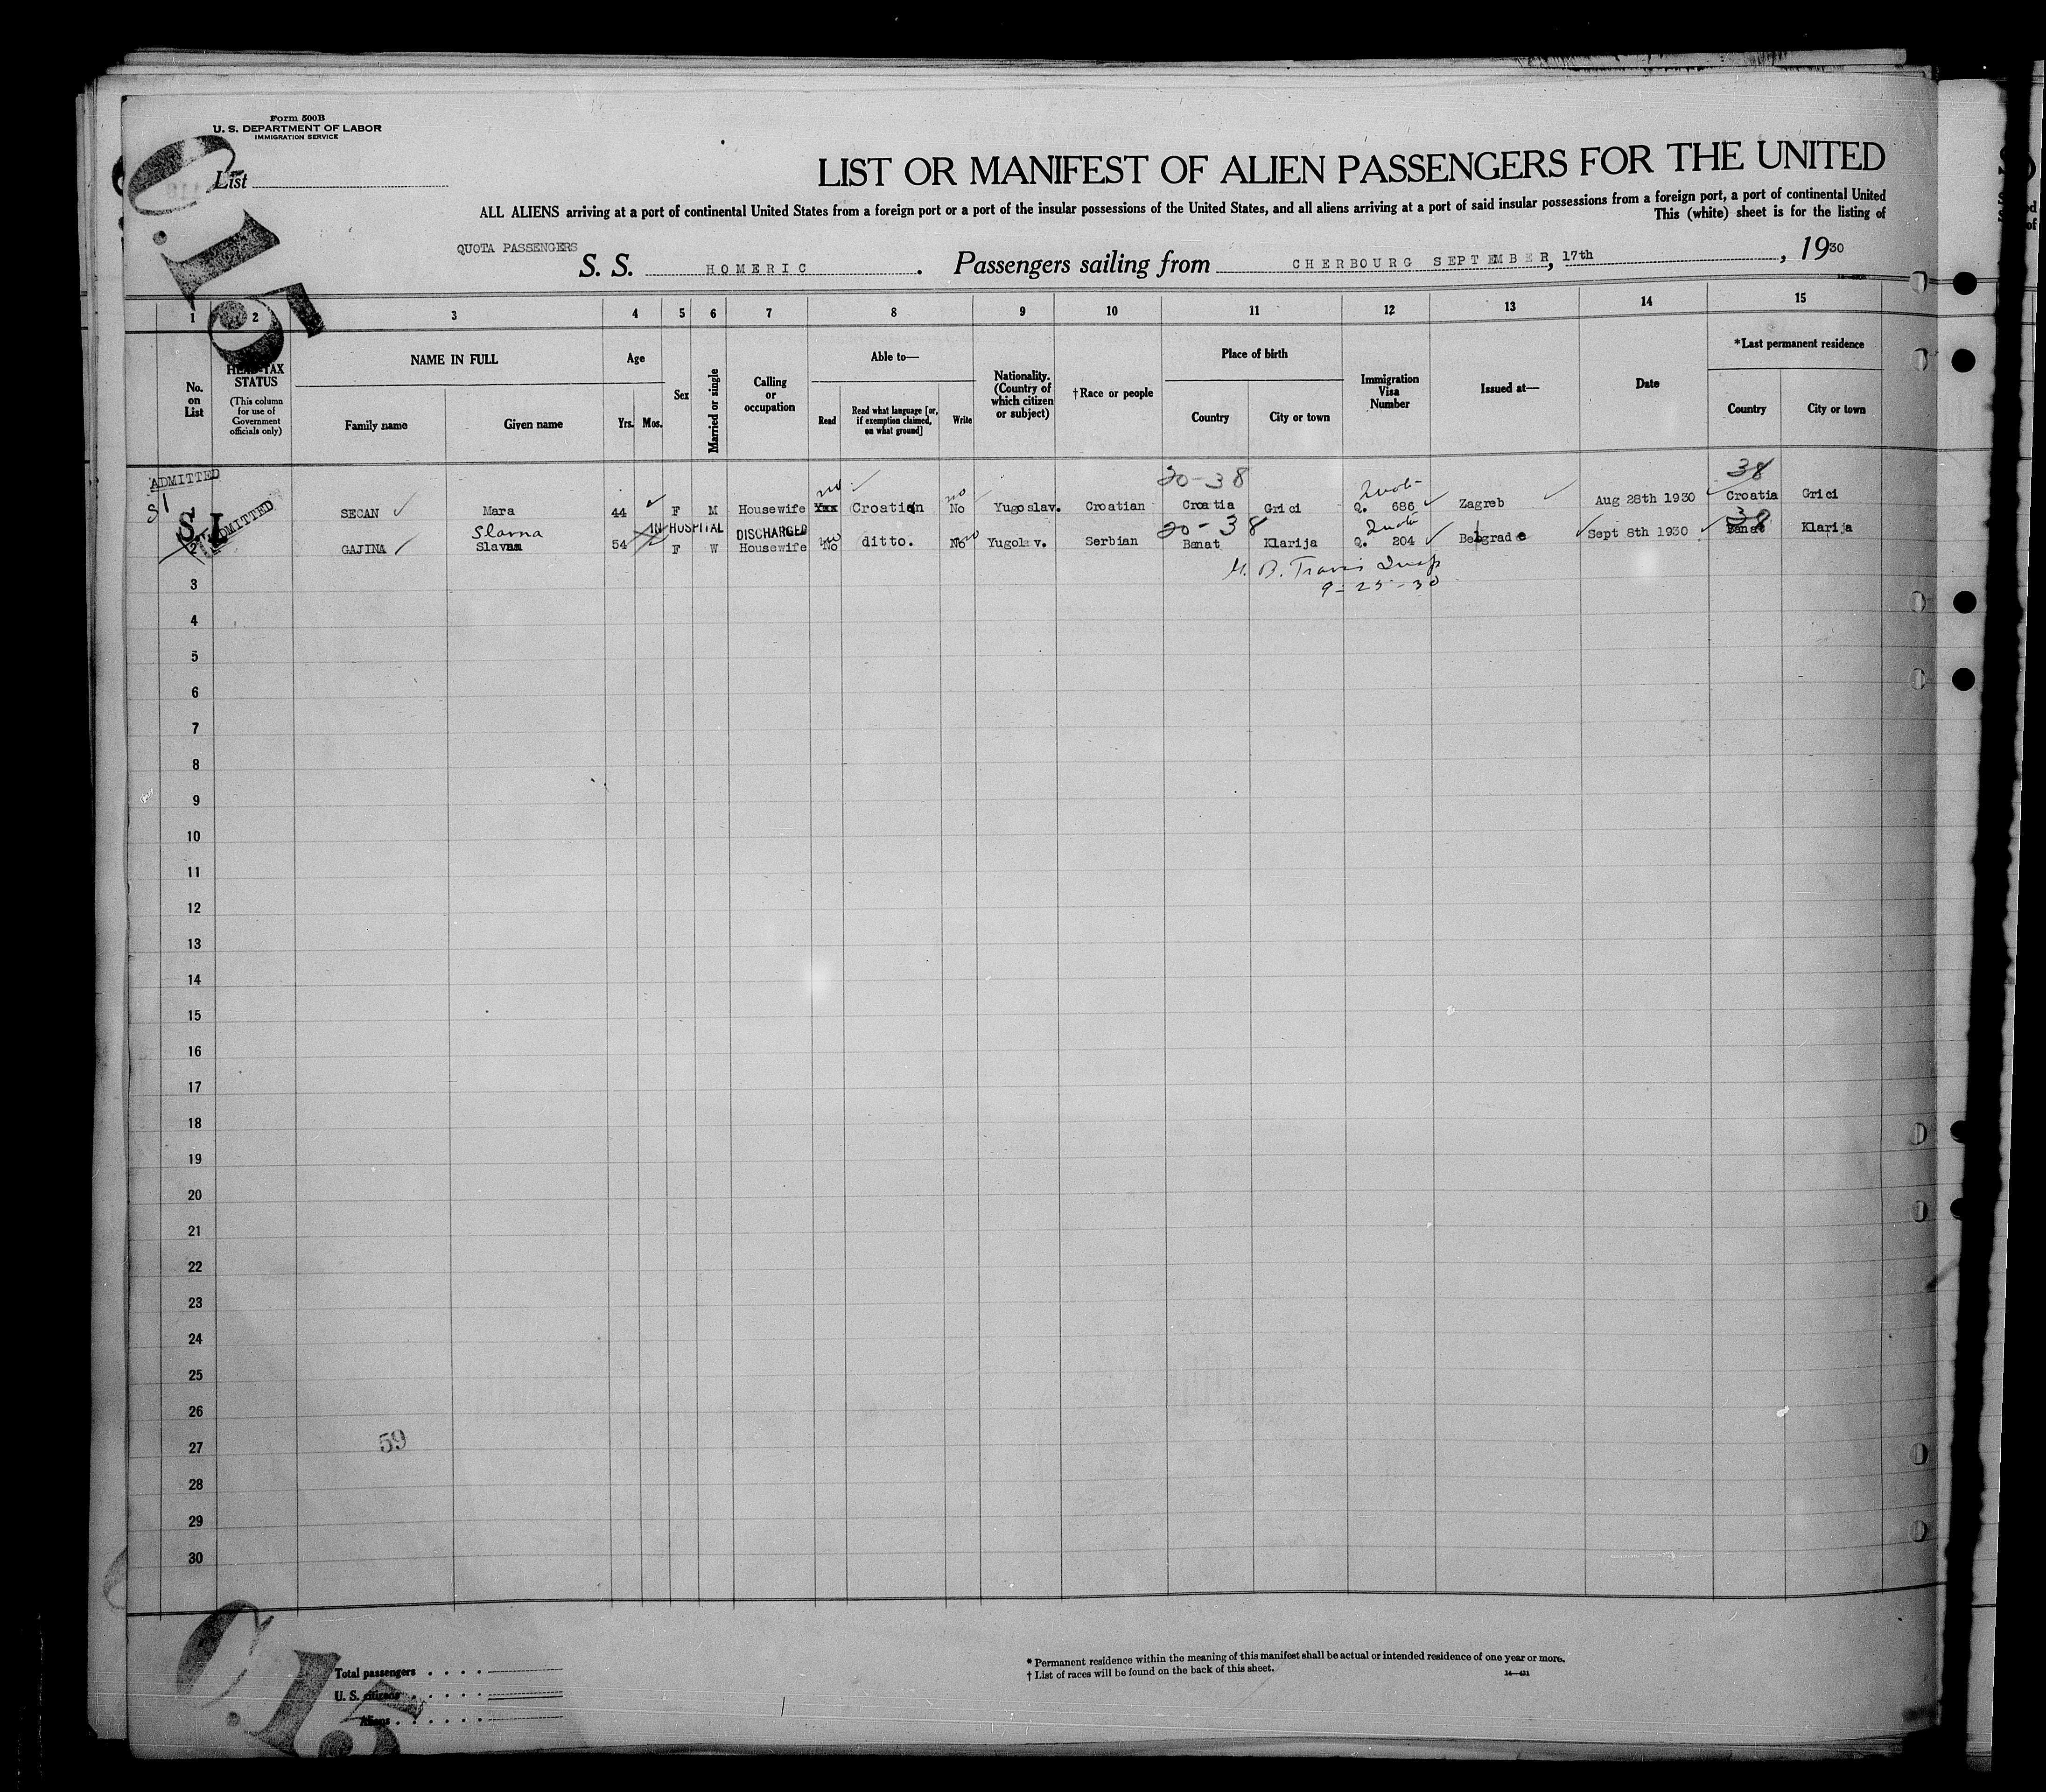 Form 500B
U. S. DEPARTMENT OF LABOR
IMMIGRATION SERVICE
List
LIST OR MANIFEST OF ALIEN PASSENGERS FOR THE UNITED
ALL ALIENS arriving at a port of continental United States from a foreign port or a port of the insular possessions of the United States, and all aliens arriving at a port of said insular possessions from a foreign port, a port of continental United
This (white) sheet is for the listing of
QUOTA PASSENGERS
S. S. HOMERIC. Passengers sailing from CHERBOURG SEPTEMBER, 17th, 1930
C.15
1 2 3 4 5 6 7 8 9 10 11 12 13 14 15
No. on List
HEAD-TAX STATUS
(This column for use of Government officials only)
NAME IN FULL
Family name Given name
Age
Yrs. Mos.
Sex
Married or single
Calling or occupation
Able to—
Read
Read what language [or, if exemption claimed, on what ground]
Write
Nationality. (Country of which citizen or subject)
†Race or people
Place of birth
Country City or town
Immigration Visa Number
Issued at—
Date
*Last permanent residence
Country City or town
ADMITTED
20-38 38
no no
SI 1 SECAN Mara 44 F M Housewife Yxx Croatian No Yugoslav. Croatian Croatia Grici Q. 686 Zagreb Aug 28th 1930 Croatia Grici
S.I. ADMITTED
Slavna IN HOSPITAL DISCHARGED 20-38 38
no no
2 GAJINA Slavna 54 F W Housewife No ditto. No Yugolav. Serbian Banat Klarija Q. 204 Belgrade Sept 8th 1930 Banat Klarija
9-25-30
3
4
5
6
7
8
9
10
11
12
13
14
15
16
17
18
19
20
21
22
23
24
25
26
27
59
28
29
30
C.15
Total passengers
U. S. citizens
Aliens
* Permanent residence within the meaning of this manifest shall be actual or intended residence of one year or more.
† List of races will be found on the back of this sheet.
14—431